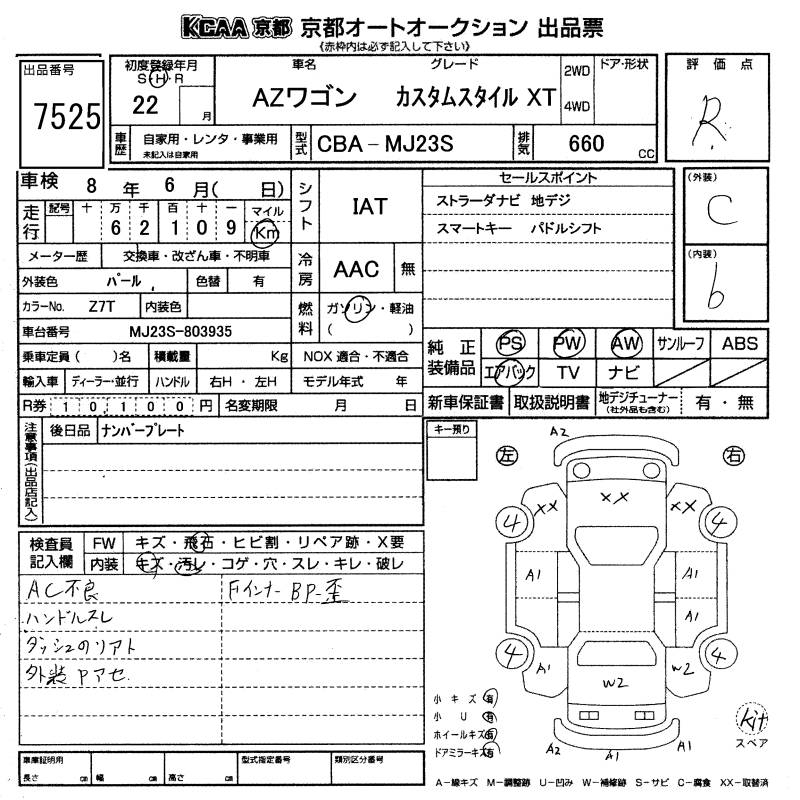 KCAA 京都 京都オートオークション 出品票
《赤枠内は必ず記入して下さい》
出品番号
7525
初度登録年月
S・H・R
22 月
車名 グレード
AZワゴン カスタムスタイル XT
2WD
4WD
ドア・形状
評価点
R
車歴 自家用・レンタ・事業用
未記入は自家用
型式 CBA-MJ23S
排気 660 CC
車検 8 年 6 月( 日)
走行 記号 十 万 千 百 十 一 マイル
6 2 1 0 9 Km
メーター歴 交換車・改ざん車・不明車
外装色 パール 色替 有
カラーNo. Z7T 内装色
車台番号 MJ23S-803935
乗車定員( )名 積載量 Kg
輸入車 ディーラー・並行 ハンドル 右H・左H
R券 10,100 円 名変期限 月 日
シフト IAT
冷房 AAC 無
燃料 ガソリン・軽油
( )
NOX 適合・不適合
モデル年式 年
セールスポイント
ストラーダナビ 地デジ
スマートキー パドルシフト
(外装)
C
(内装)
b
純正装備品 PS PW AW サンルーフ ABS
エアバック TV ナビ
新車保証書 取扱説明書 地デジチューナー
(社外品も含む) 有・無
注意事項(出品店記入)
後日品 ナンバープレート
検査員記入欄
FW キズ・飛石・ヒビ割・リペア跡・X要
内装 キズ・汚レ・コゲ・穴・スレ・キレ・破レ
AC不良 Fインナー BP-歪
ハンドルスレ
ダッシュのリアト
外装 Pアセ
車庫証明用
長さ cm 幅 cm 高さ cm
型式指定番号 類別区分番号
キー預り
左 右
A2
XX XX XX
4 4
A1 A1
A1
4 4
A1 W2 W2
A2 A1 A1
小キズ 有
小U 有
ホイールキズ 有
ドアミラーキズ 有
kit
スペア
A-線キズ M-調整跡 U-凹み W-補修跡 S-サビ C-腐食 XX-取替済